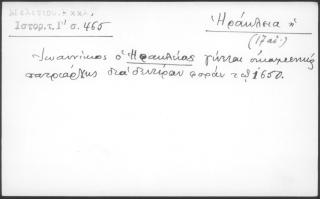 Μελετίου Εκκλ.
Ἱστορ. τ. Γ' σ. 465
Ἡράκλεια ἡ
(17 αἰ.)
Ἰωαννίκιος ὁ Ἡρακλείας γίνεται οἰκουμενικὸς
πατριάρχης διὰ δευτέραν φορὰν τῷ 1650.